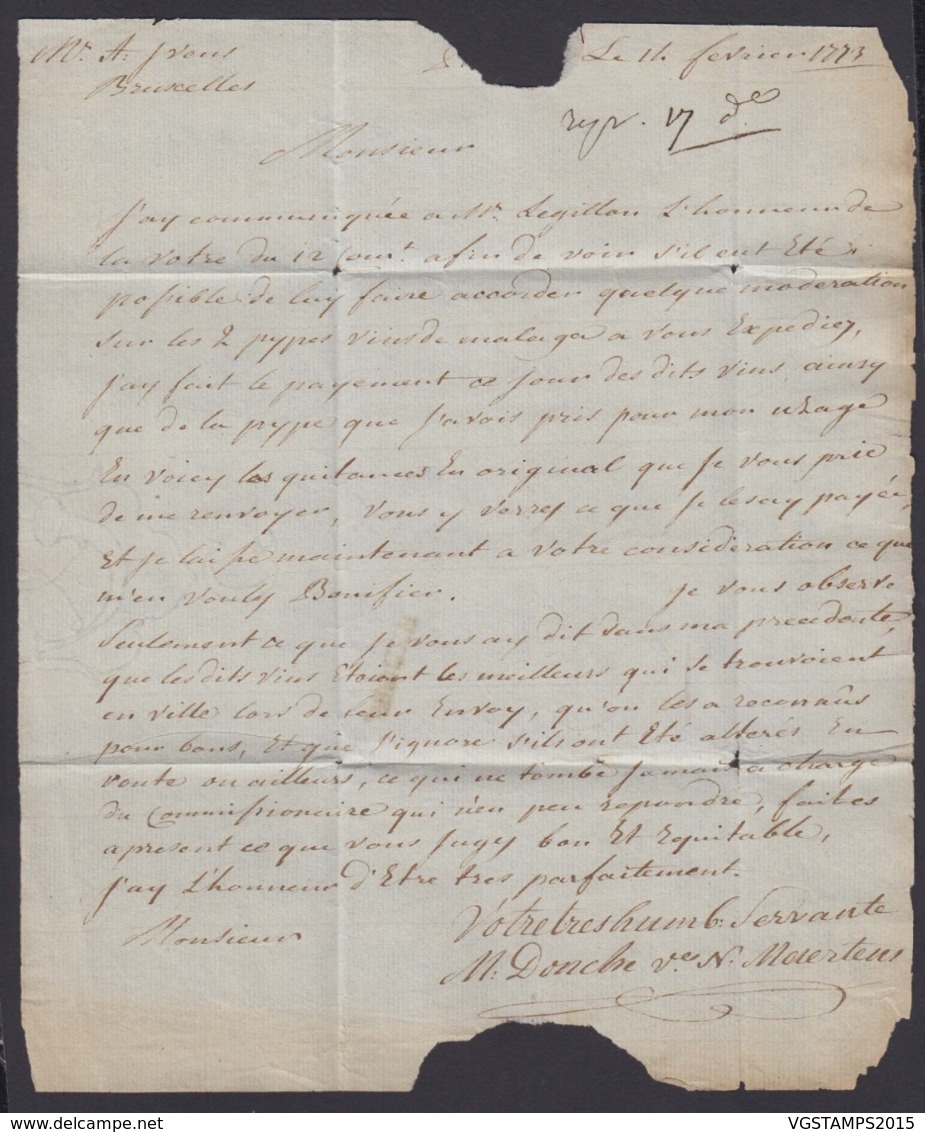 Mr. A: Ivens Le 14 fevrier 1773
Bruxelles
rep. 17 do.
Monsieur
J'ay communiquée a Mr. Legillon L'honneur de
la votre du 12 Cour.t afin de voir s'il eut Eté
possible de luy faire accorder quelque moderation
sur les 2 pypes vins de malaga a vous Expediez,
J'ay fait le payement ce Jour des dits vins, ainsy
que de la pype que J'avois pris pour mon uzage
En voicy les quitances En original que Je vous prie
de me renvoyer, vous y verres ce que Je les ay payée,
Et Je laisse maintenant a votre consideration ce que
m'en vouly Bonifier. Je vous observe
seulement ce que Je vous ay dit dans ma precedente,
que les dits vins Etoient les meilleurs qui se trouvoient
en ville lors de leur Envoy, qu'on les a reconnûs
pour bons, Et que J'ignore s'ils ont Eté alterés En
route ou ailleurs, ce qui ne tombe Jamais a charge
du Commissionaire qui n'en peu repondre, faites
apresent ce que vous Jugy bon Et Equitable,
J'ay L'honneur d'Etre tres parfaitement.
Monsieur
Votre tres humb: Servante
M: Donche ve. N. Maertens
VGSTAMPS2015